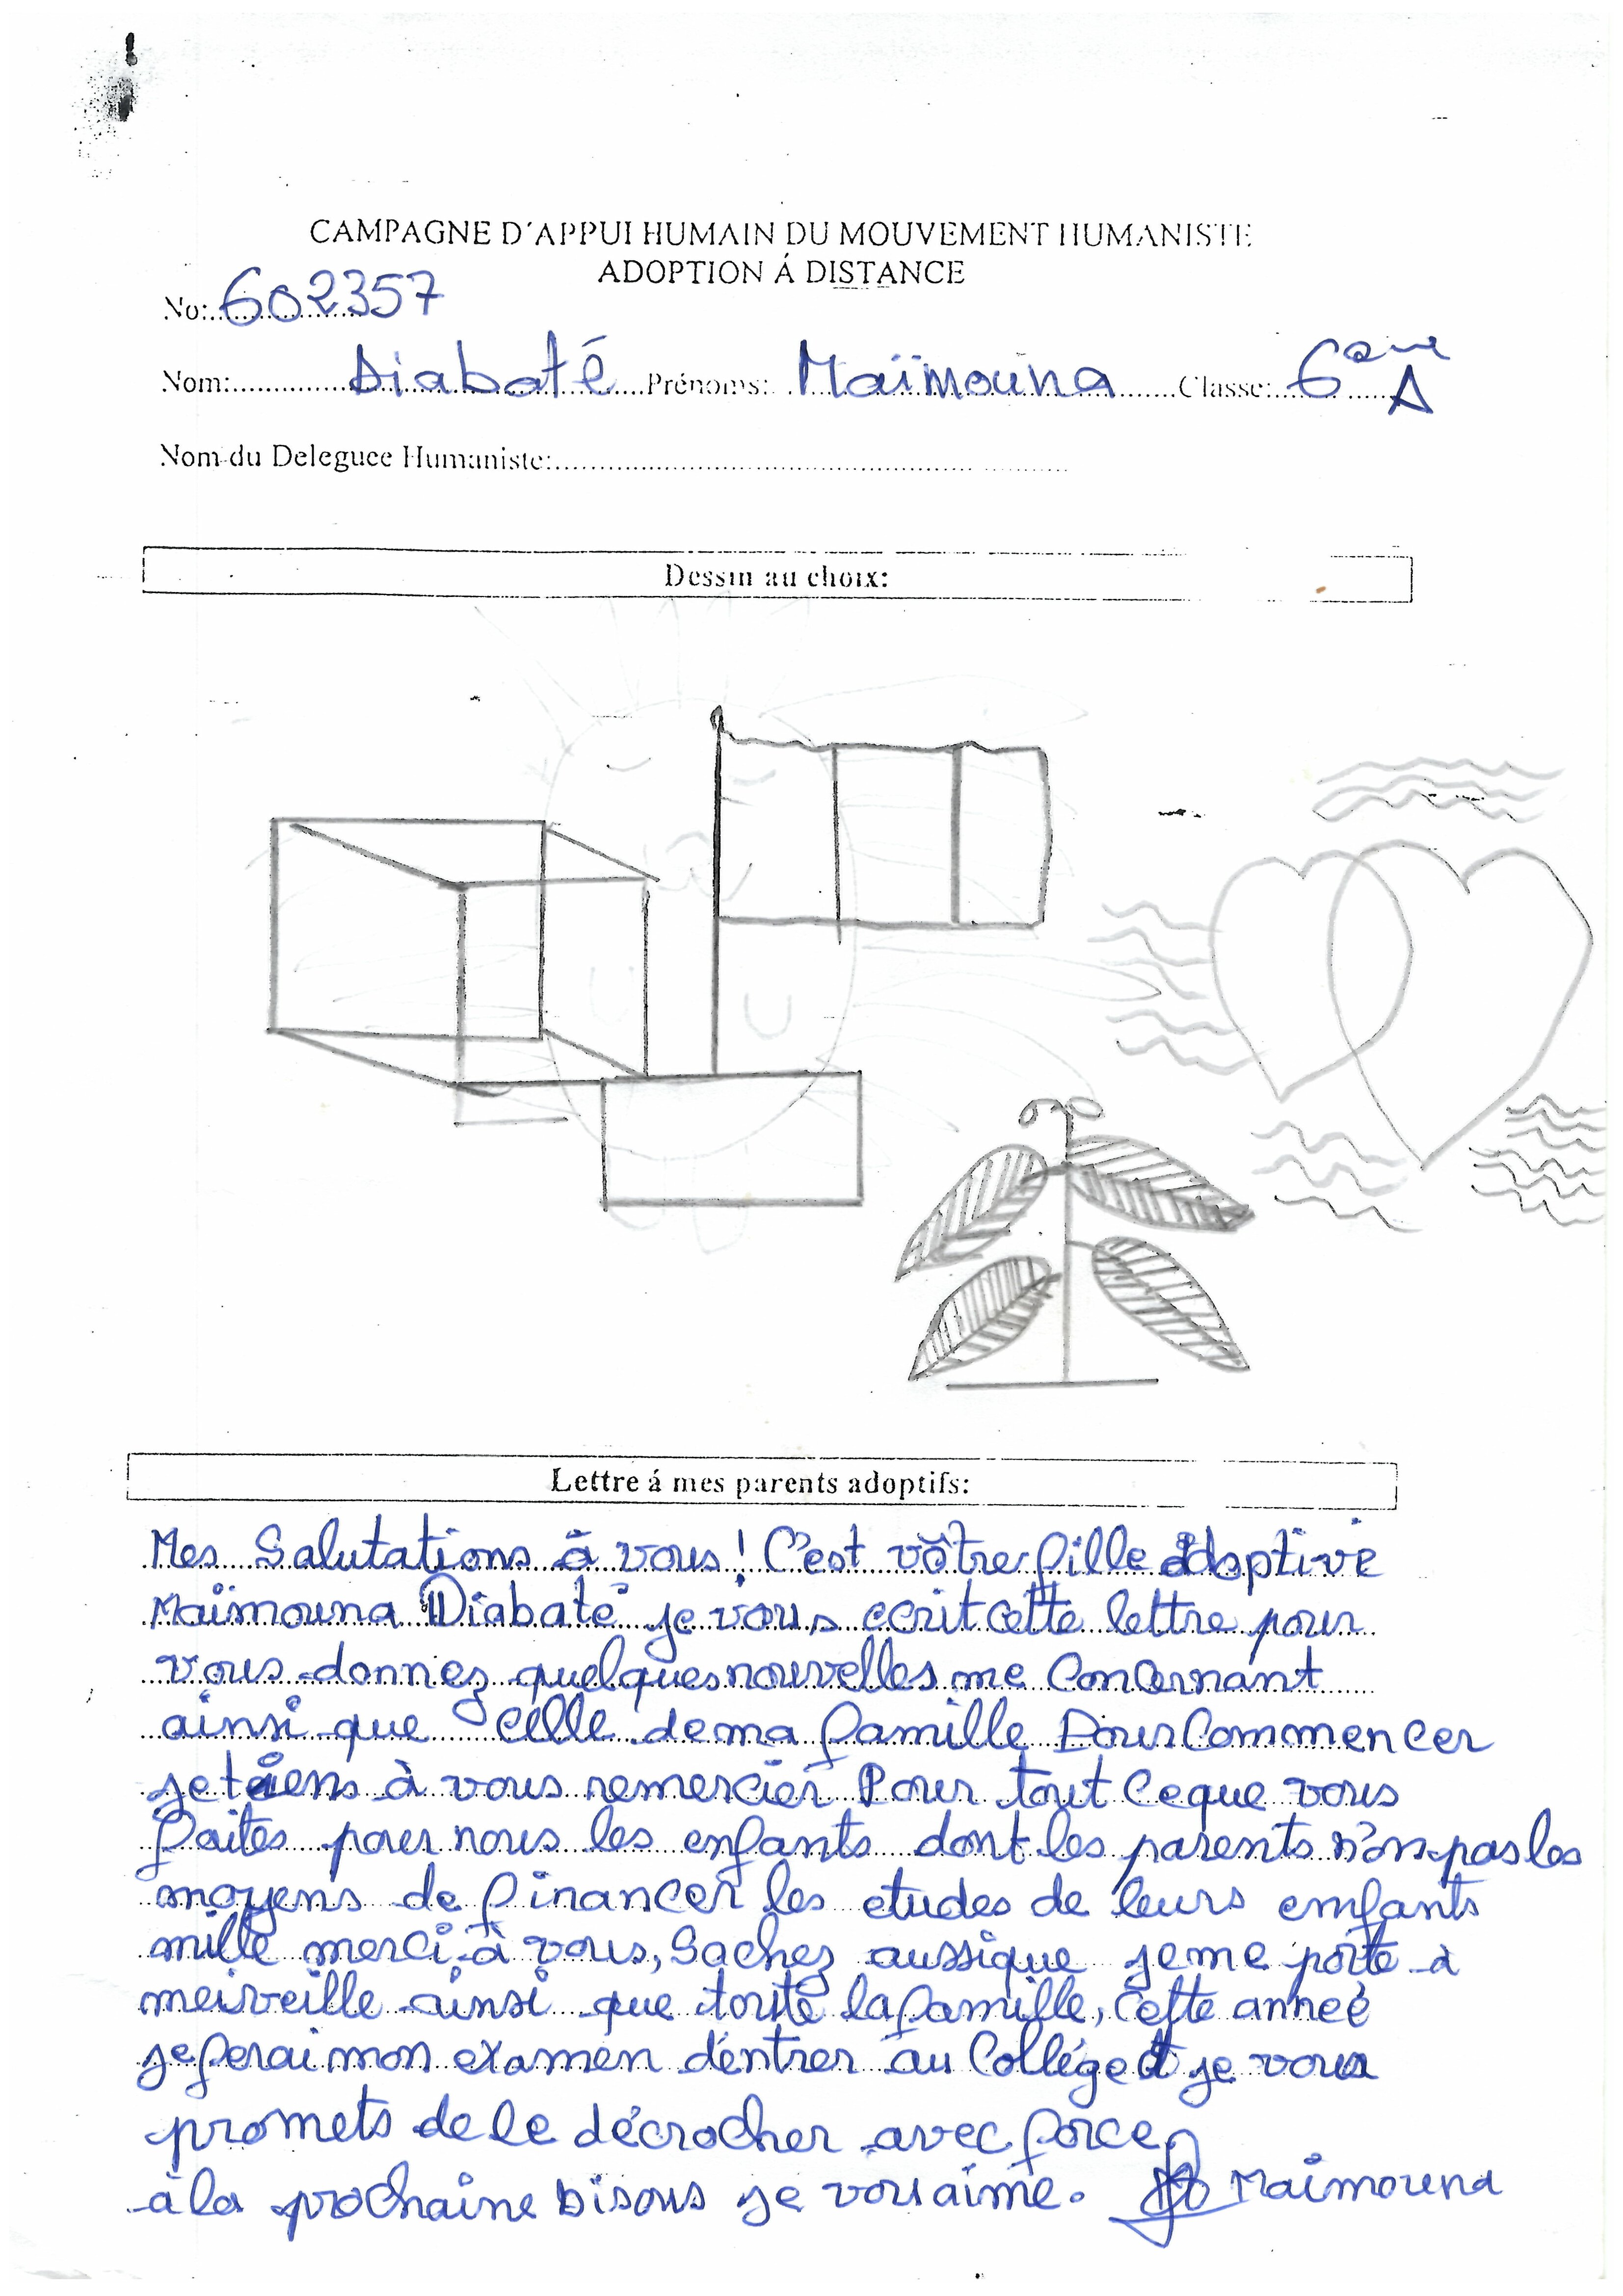 CAMPAGNE D'APPUI HUMAIN DU MOUVEMENT HUMANISTE
ADOPTION Á DISTANCE
No: 602357
Nom: Diabaté Prénoms: Maïmouna Classe: 6ème A
Nom du Deleguee Humaniste:
Dessin au choix:
Lettre á mes parents adoptifs:
Mes Salutations à vous! C'est vôtre fille adoptive
Maïmouna Diabaté je vous ecrit cette lettre pour
vous donnez quelques nouvelles me Concernant
ainsi que celle de ma famille Pour Commencer
je tiens à vous remercier Pour tout Ce que vous
faites pour nous les enfants dont les parents n'ons pas les
moyens de financer les etudes de leurs enfants
mille merci à vous, Sachez aussi que je me porte à
meirveille ainsi que toute la famille, Cette anneé
je ferai mon examen d'entrer au Collége et je vous
promets de le décrocher avec force,
à la prochaine bisous je vous aime. Maimouna